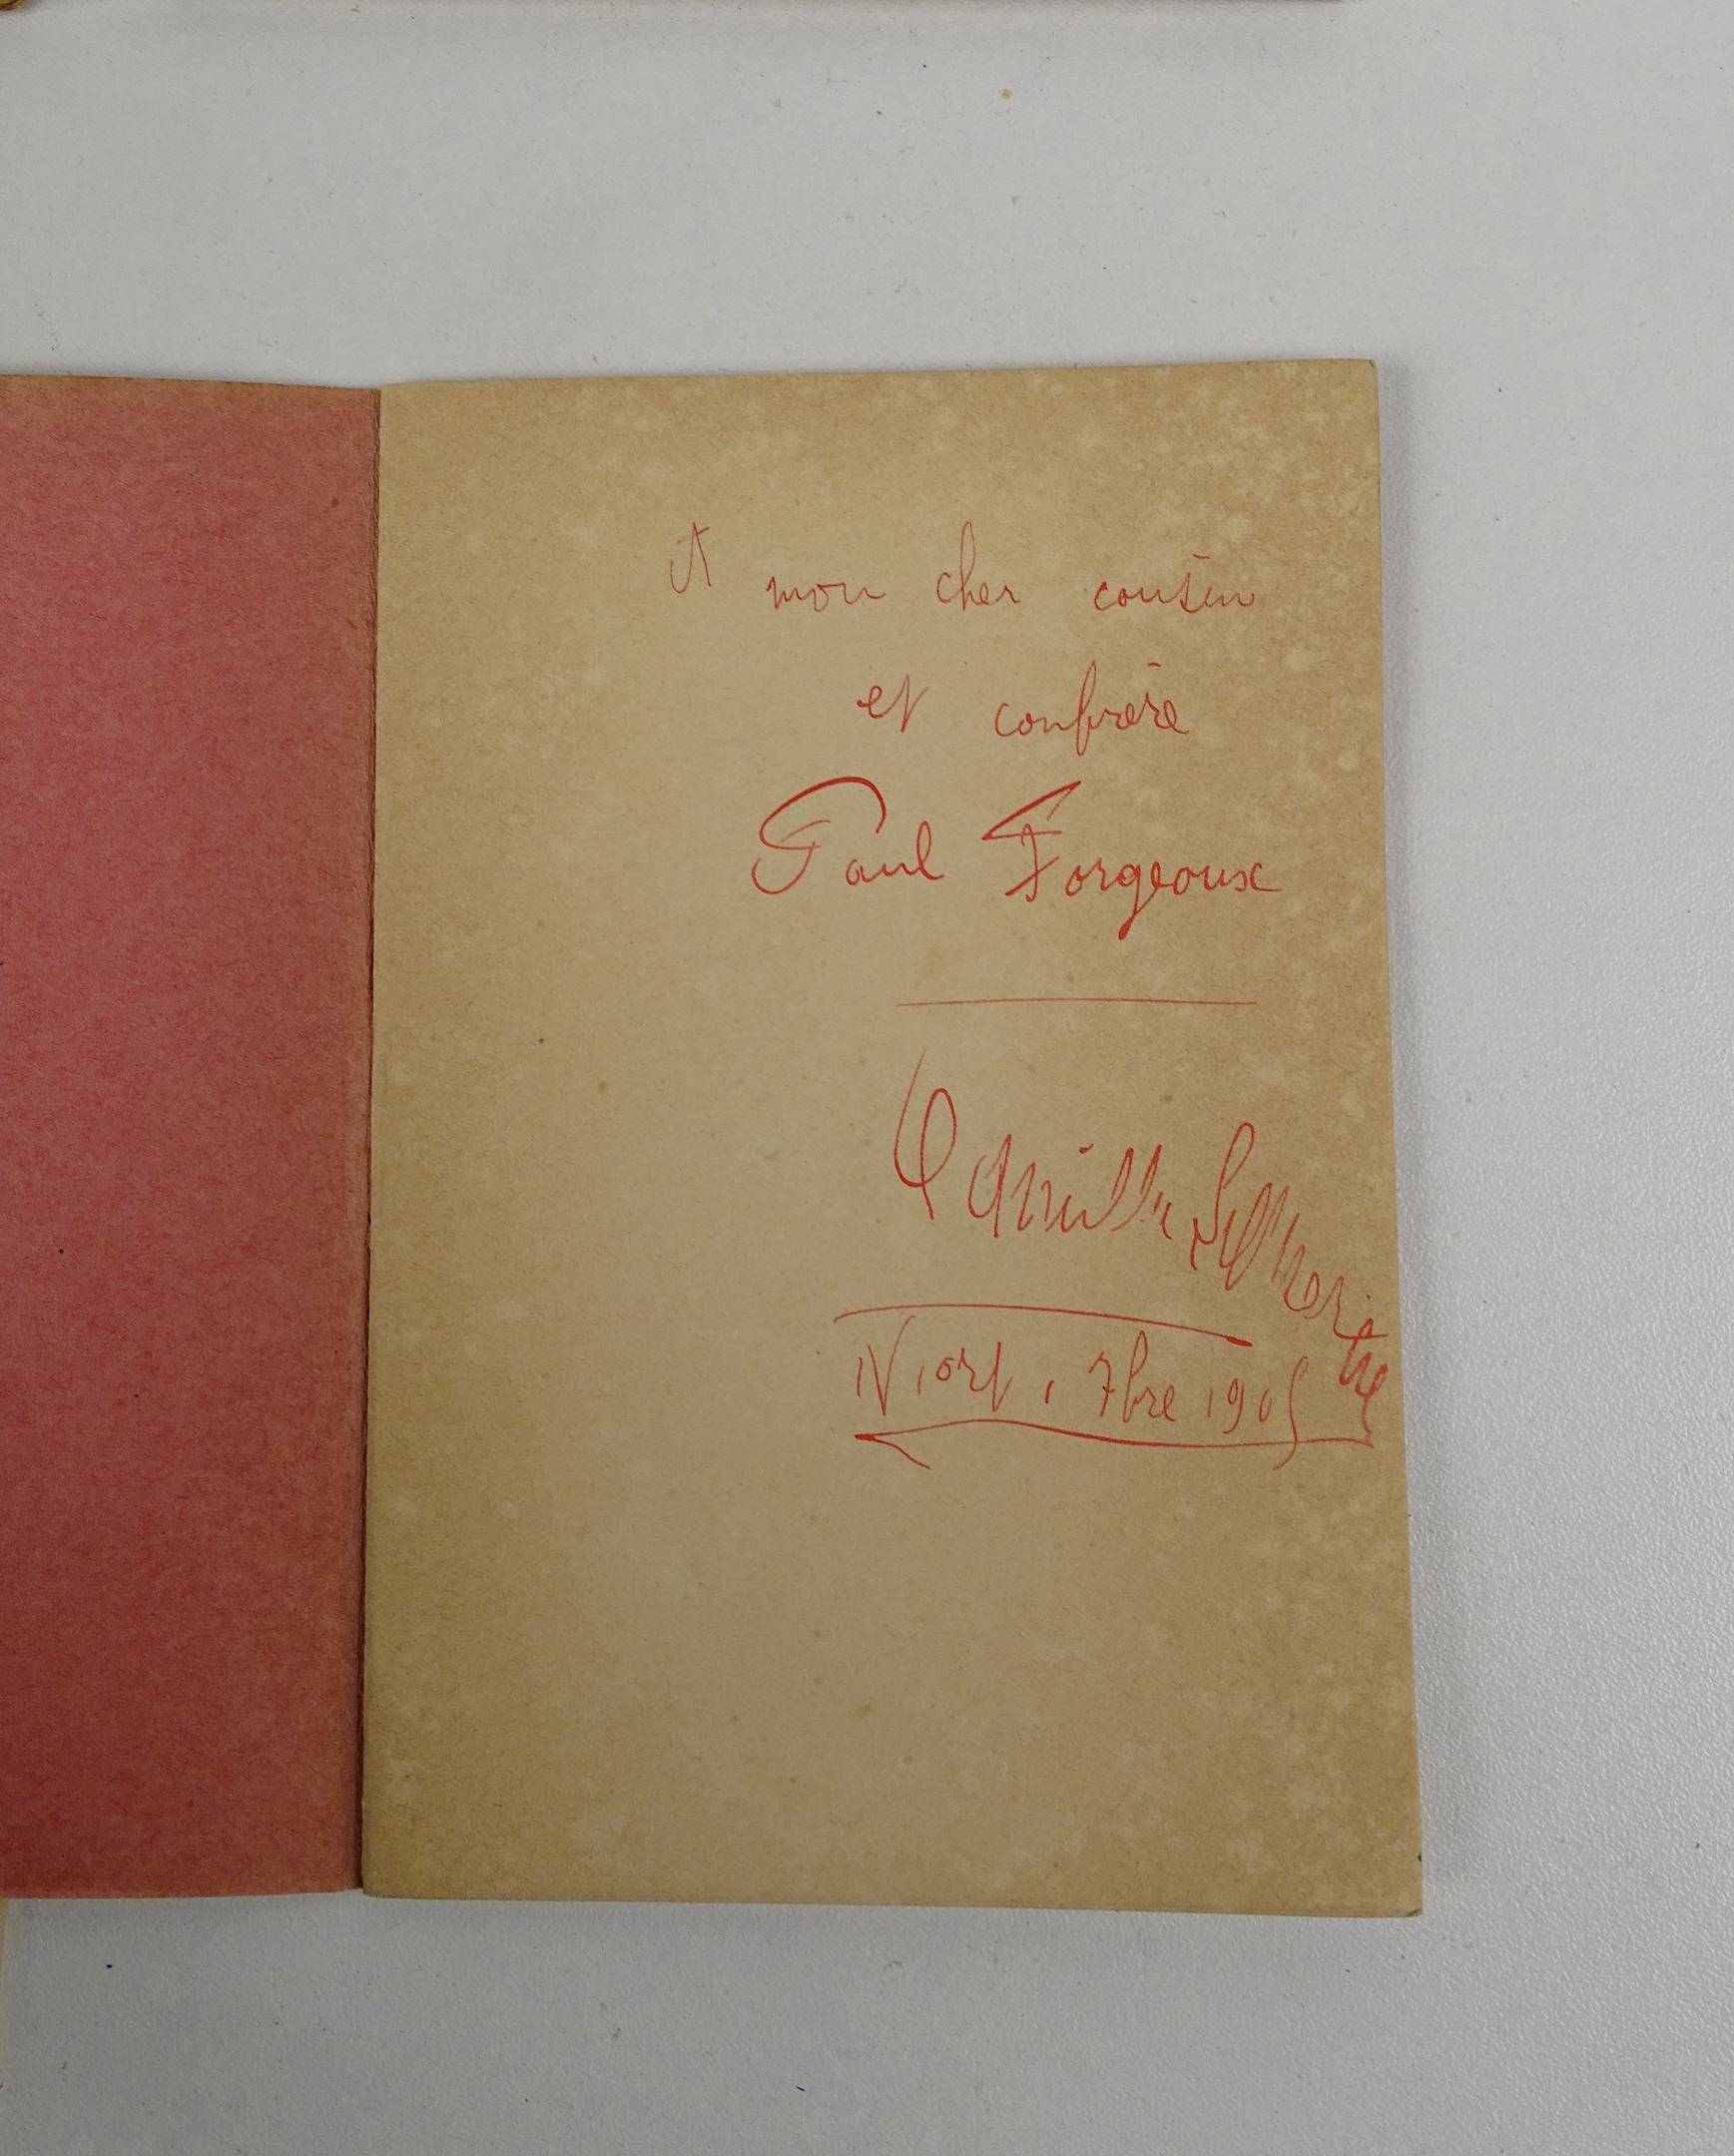 A mon cher cousin
et confrère
Paul Forgeoux
Camille
Niort, 7bre 1905